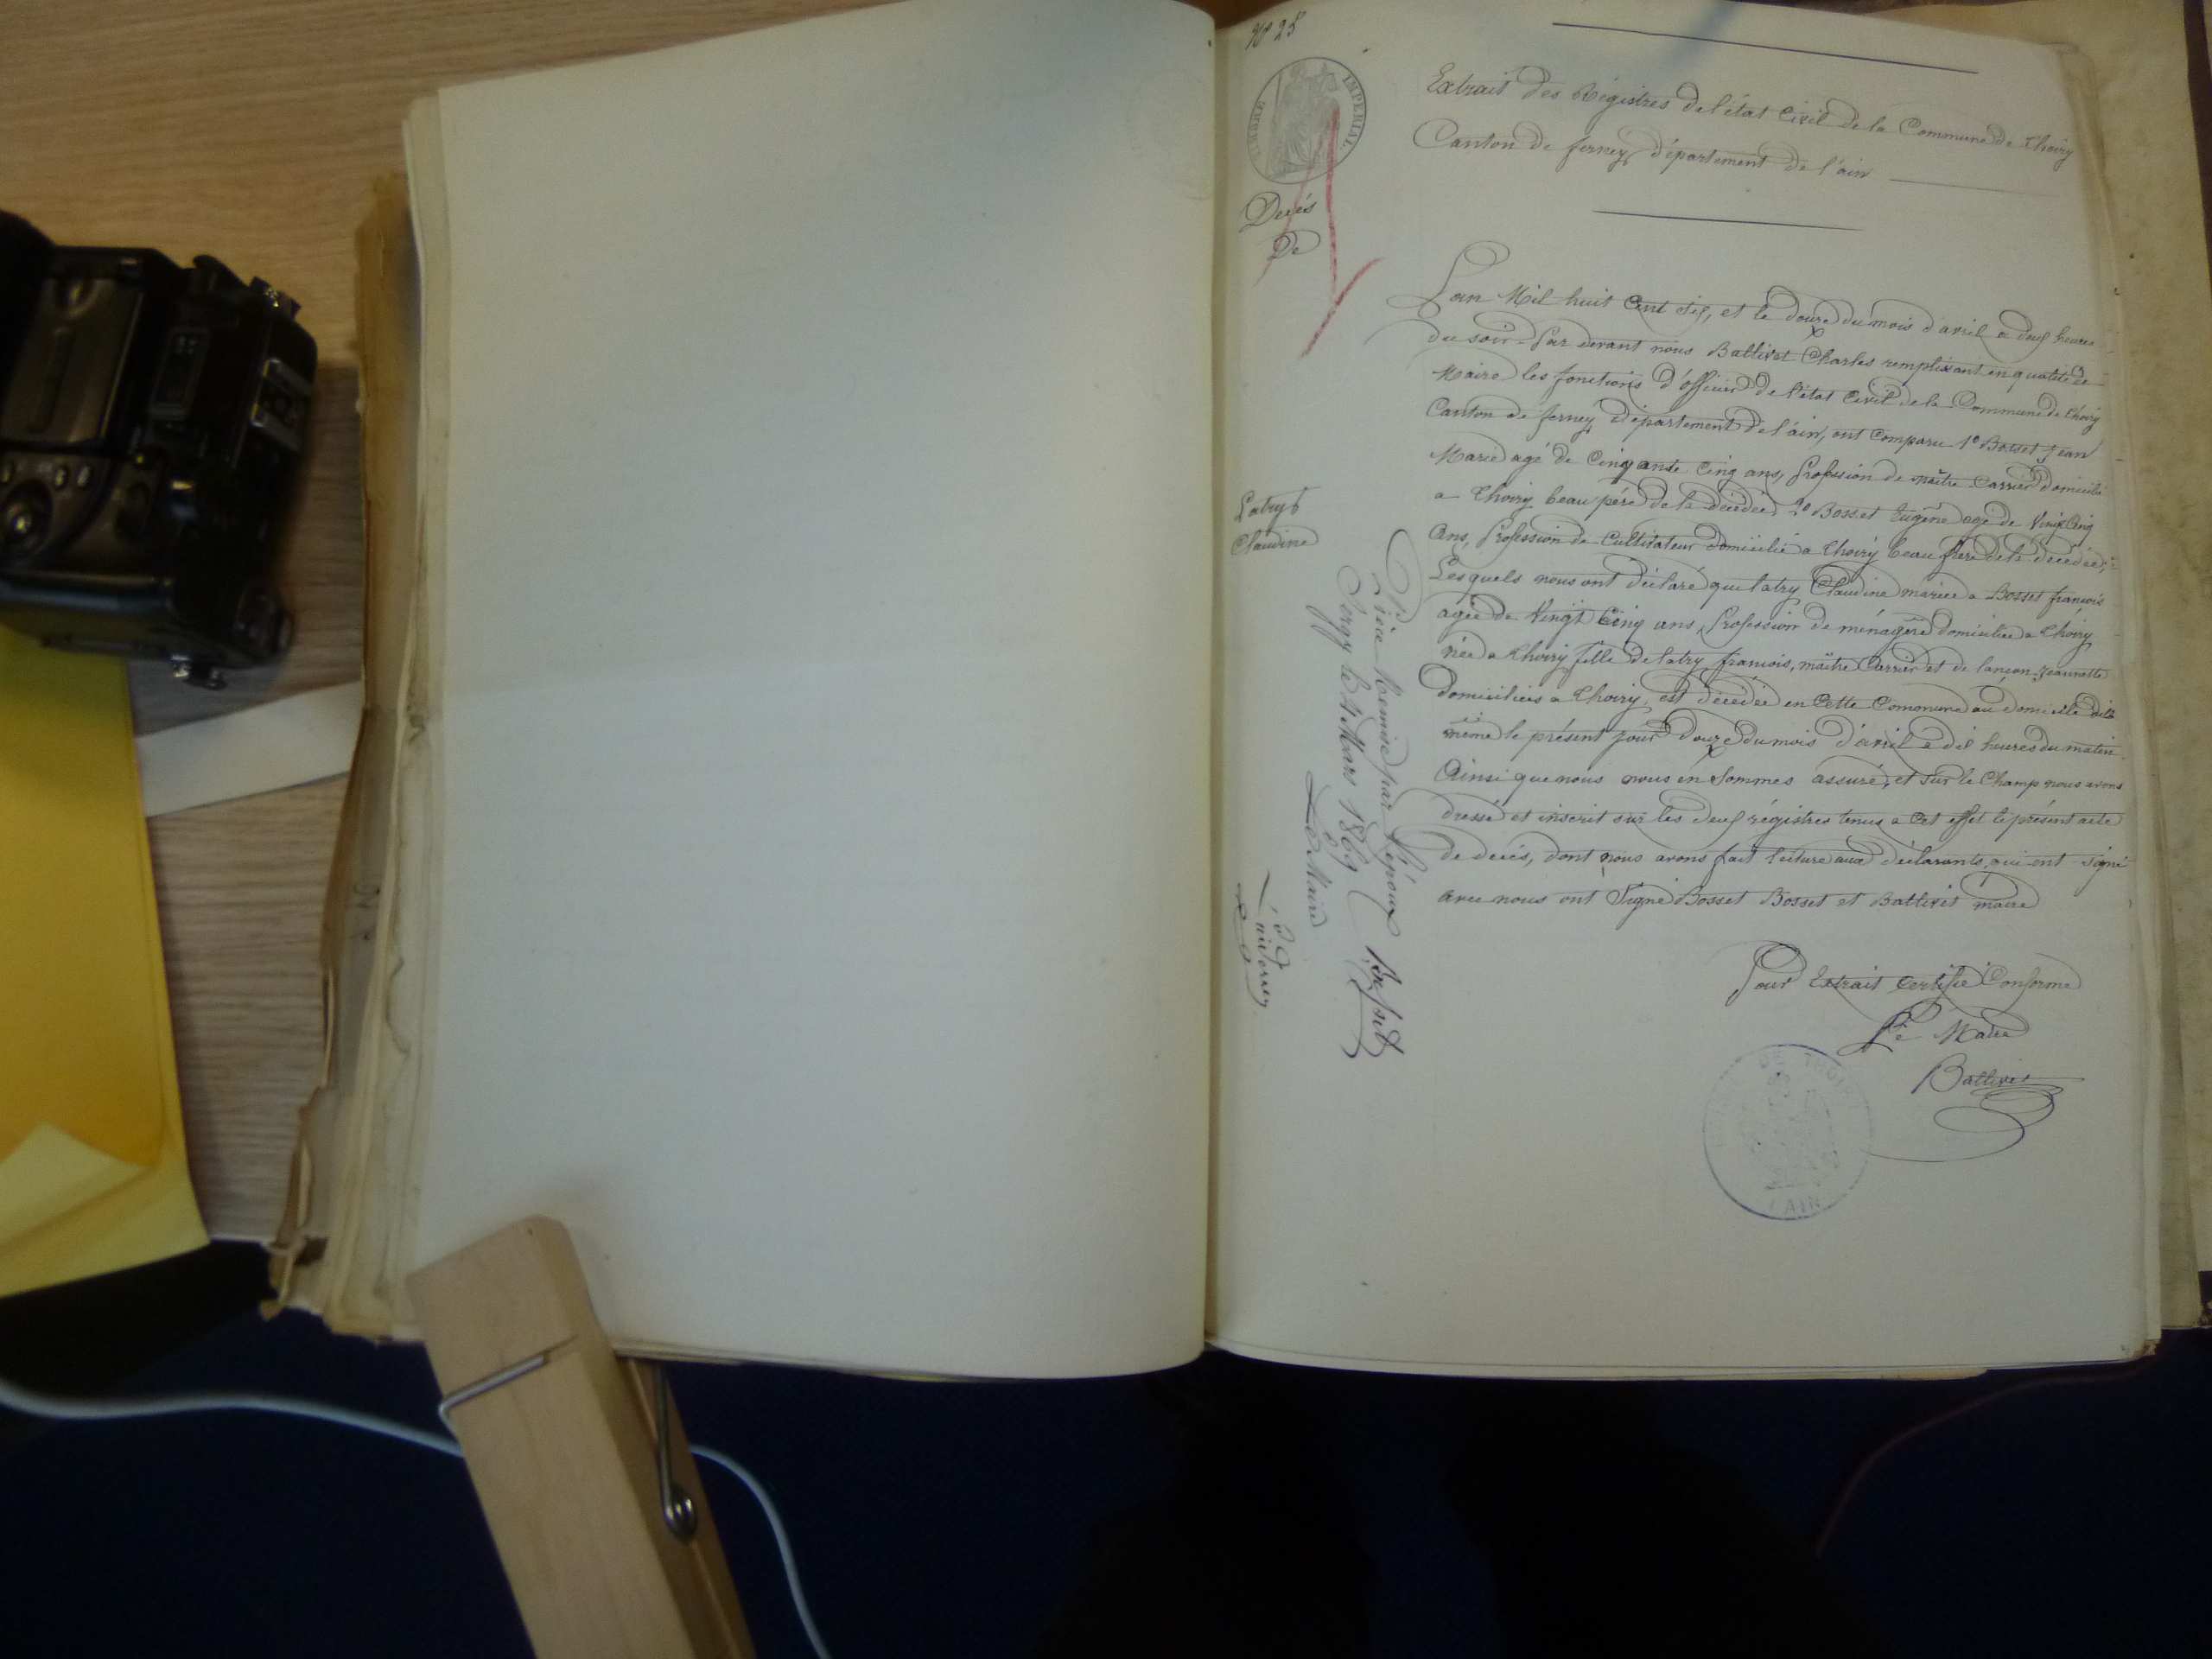 N° 25
TIMBRE IMPERIAL
Extrait des Régistres de l'état Civil de la Commune de Thoiry
Canton de ferney, département de l'ain
Decés
De
Latry
Claudine
L'an Mil huit Cent et le douze du mois d'avril a deux heures
du soir Par devant nous Battivet Charles remplissant en qualité de
Maire les fonctions d'officier de l'état Civil de la Commune de Thoiry
Canton de ferney département de l'ain, ont Comparu 1° Bosset Jean
Marie agé de Cinquante Cinq ans, Profession de maître Carrier domicilié
a Thoiry beau pére de la décédée, 2° Bosset Eugène agé de Vingt Cinq
Ans, Profession de Cultivateur domicilié a Thoiry beau frère de la décédée,
Lesquels nous ont déclaré que latry Claudine mariée a Bosset françois
agée de Vingt Cinq ans, Profession de ménagère domiciliée a Thoiry
née a Thoiry fille de latry françois, maître Carrier et de lançon Jeannette
domiciliés a Thoiry, est décédée en Cette Commune au domicile dit
même le présent jour douze du mois d'avril a dix heures du matin
Ainsi que nous nous en Sommes assuré, et sur le Champ nous avons
dressé et inscrit sur les deux régistres tenus a Cet effet le présent acte
de decés, dont nous avons fait lecture aux déclarants, qui ont signé
avec nous ont Signé Bosset Bosset et Battivet maire
Pièce Remise par l'époux Bosset
Sergy le 4 Mars 1869
Le Maire
Pour Extrait Certifié Conforme
Le Maire
Battivet
AIN